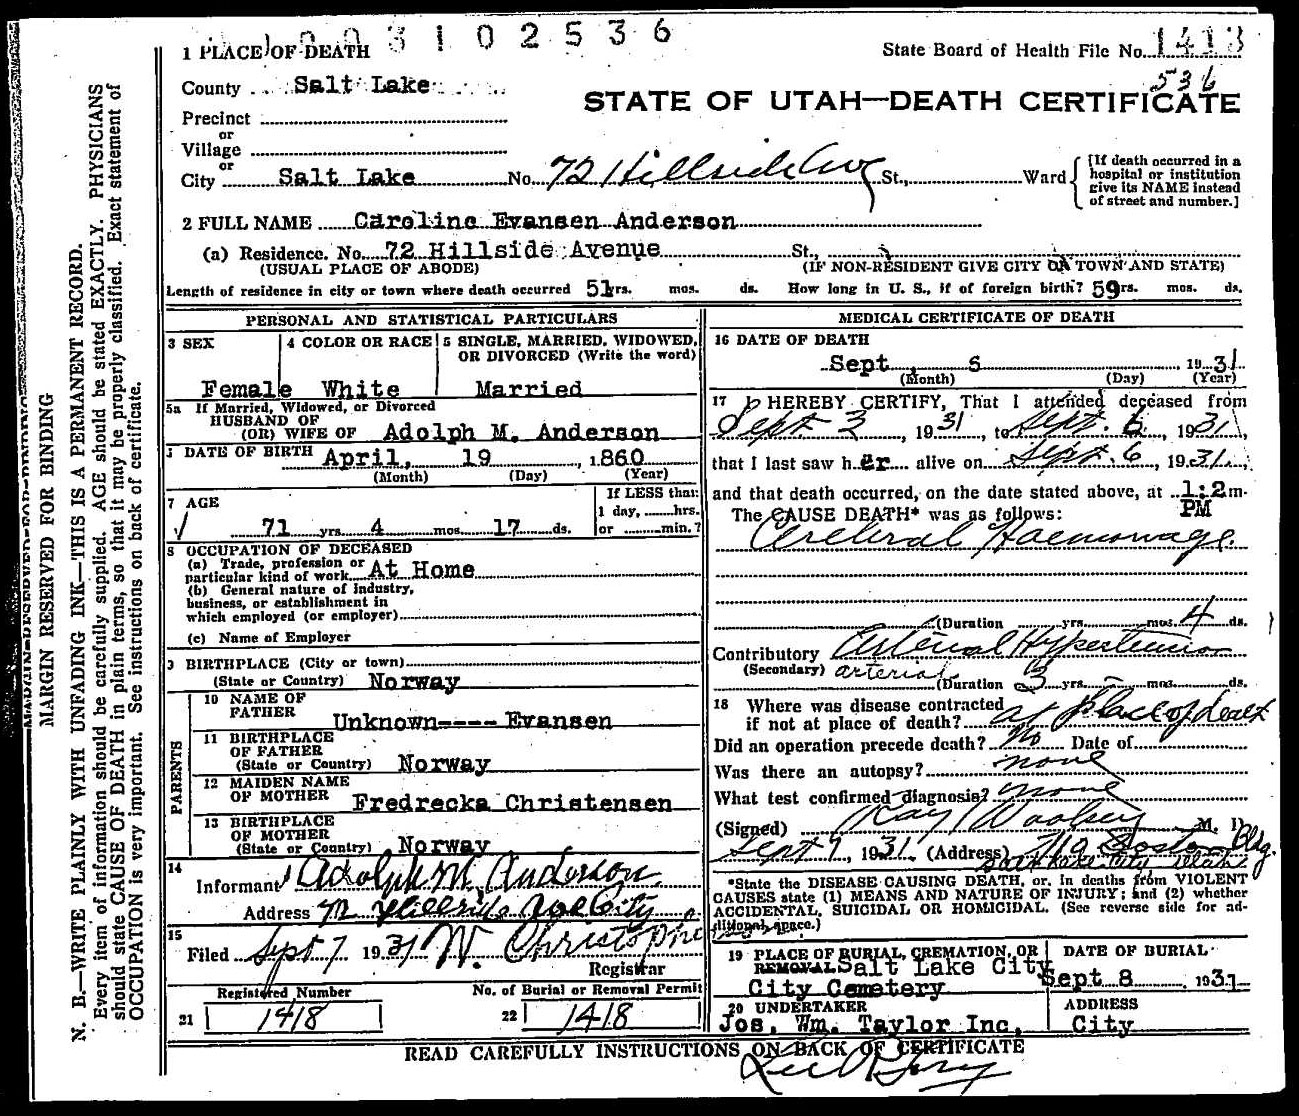 3 1 0 2 5 3 6
1 PLACE OF DEATH
State Board of Health File No. 1413
536
County Salt Lake
STATE OF UTAH—DEATH CERTIFICATE
Precinct
or
Village
or
City Salt Lake No. 72 Hillside Ave St., Ward
[If death occurred in a hospital or institution give its NAME instead of street and number.]
2 FULL NAME Caroline Evansen Anderson
(a) Residence. No. 72 Hillside Avenue St.,
(USUAL PLACE OF ABODE) (IF NON-RESIDENT GIVE CITY OR TOWN AND STATE)
Length of residence in city or town where death occurred 51 yrs. mos. ds. How long in U. S., if of foreign birth? 59 yrs. mos. ds.
PERSONAL AND STATISTICAL PARTICULARS
3 SEX
Female
4 COLOR OR RACE
White
5 SINGLE, MARRIED, WIDOWED, OR DIVORCED (Write the word)
Married
5a If Married, Widowed, or Divorced
HUSBAND OF
(OR) WIFE OF Adolph M. Anderson
DATE OF BIRTH April, 19, 1860
(Month) (Day) (Year)
7 AGE
71 yrs. 4 mos. 17 ds.
If LESS than
1 day, hrs.
or min.?
8 OCCUPATION OF DECEASED
(a) Trade, profession or
particular kind of work At Home
(b) General nature of industry,
business, or establishment in
which employed (or employer)
(c) Name of Employer
9 BIRTHPLACE (City or town)
(State or Country) Norway
PARENTS
10 NAME OF
FATHER Unknown---- Evansen
11 BIRTHPLACE
OF FATHER
(State or Country) Norway
12 MAIDEN NAME
OF MOTHER Fredrecka Christensen
13 BIRTHPLACE
OF MOTHER
(State or Country) Norway
14
Informant Adolph M. Anderson
Address 72 Hillside Ave City
15
Filed Sept 7 1931 W. Christophe
Registrar
Registered Number
21 1418
No. of Burial or Removal Permit
22 1418
MEDICAL CERTIFICATE OF DEATH
16 DATE OF DEATH
Sept 1931
(Month) (Day) (Year)
17 I HEREBY CERTIFY, That I attended deceased from
Sept. 3, 1931, to Sept. 6, 1931,
that I last saw her alive on Sept. 6, 1931.,
and that death occurred, on the date stated above, at 1:2m.
PM
The CAUSE DEATH* was as follows:
Cerebral Haemorrage.
(Duration yrs. mos. 4 ds.
Contributory Arterial Hypertension
(Secondary) arterial (Duration 3 yrs. - mos. ds.
18 Where was disease contracted
if not at place of death? at place of death
Did an operation precede death? No Date of
Was there an autopsy? none
What test confirmed diagnosis? none
(Signed) Ray Woolsey M. D.
Sept 7, 1931 (Address) 719 Boston Bldg.
Salt Lake City Utah
*State the DISEASE CAUSING DEATH, or, in deaths from VIOLENT
CAUSES state (1) MEANS AND NATURE OF INJURY; and (2) whether
ACCIDENTAL, SUICIDAL OR HOMICIDAL. (See reverse side for ad-
ditional space.)
19 PLACE OF BURIAL, CREMATION, OR
REMOVAL Salt Lake City
City Cemetery
DATE OF BURIAL
Sept 8 1931
20 UNDERTAKER
Jos. Wm. Taylor Inc.
ADDRESS
City
READ CAREFULLY INSTRUCTIONS ON BACK OF CERTIFICATE
MARGIN RESERVED FOR BINDING
N. B.—WRITE PLAINLY WITH UNFADING INK—THIS IS A PERMANENT RECORD.
Every item of information should be carefully supplied. AGE should be stated EXACTLY. PHYSICIANS
should state CAUSE OF DEATH in plain terms, so that it may be properly classified. Exact statement of
OCCUPATION is very important. See instructions on back of certificate.